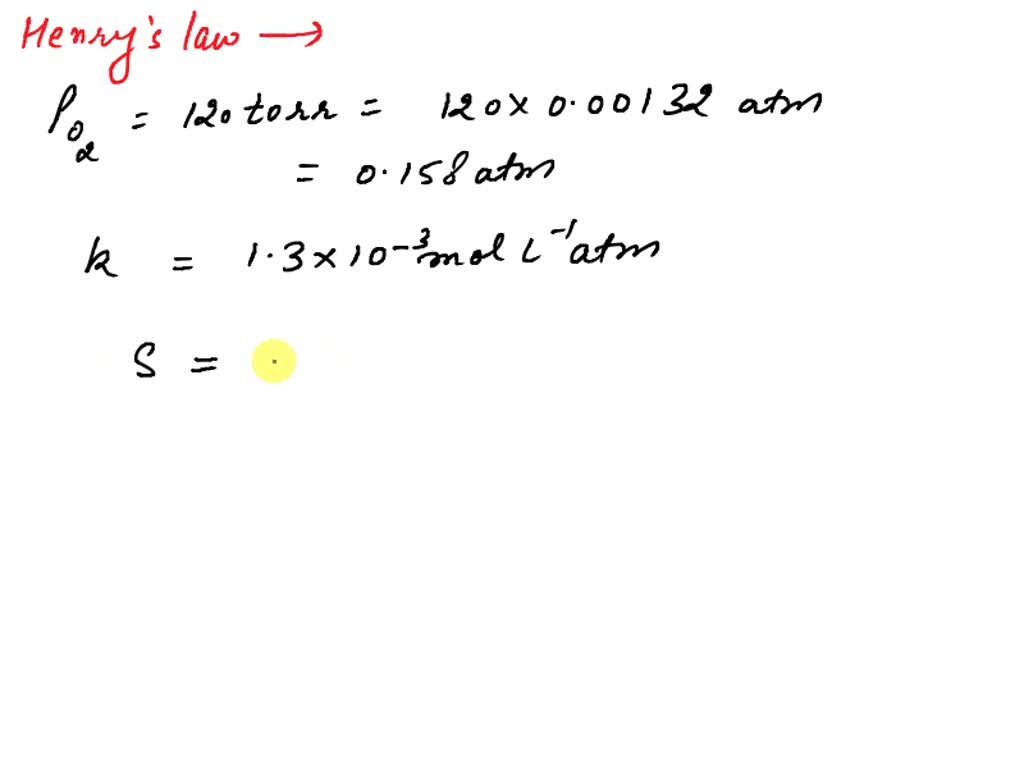 Henry's law →
P_O2 = 120 torr = 120 × 0.00132 atm
= 0.158 atm
k = 1.3 × 10⁻³ mol L⁻¹ atm
S =